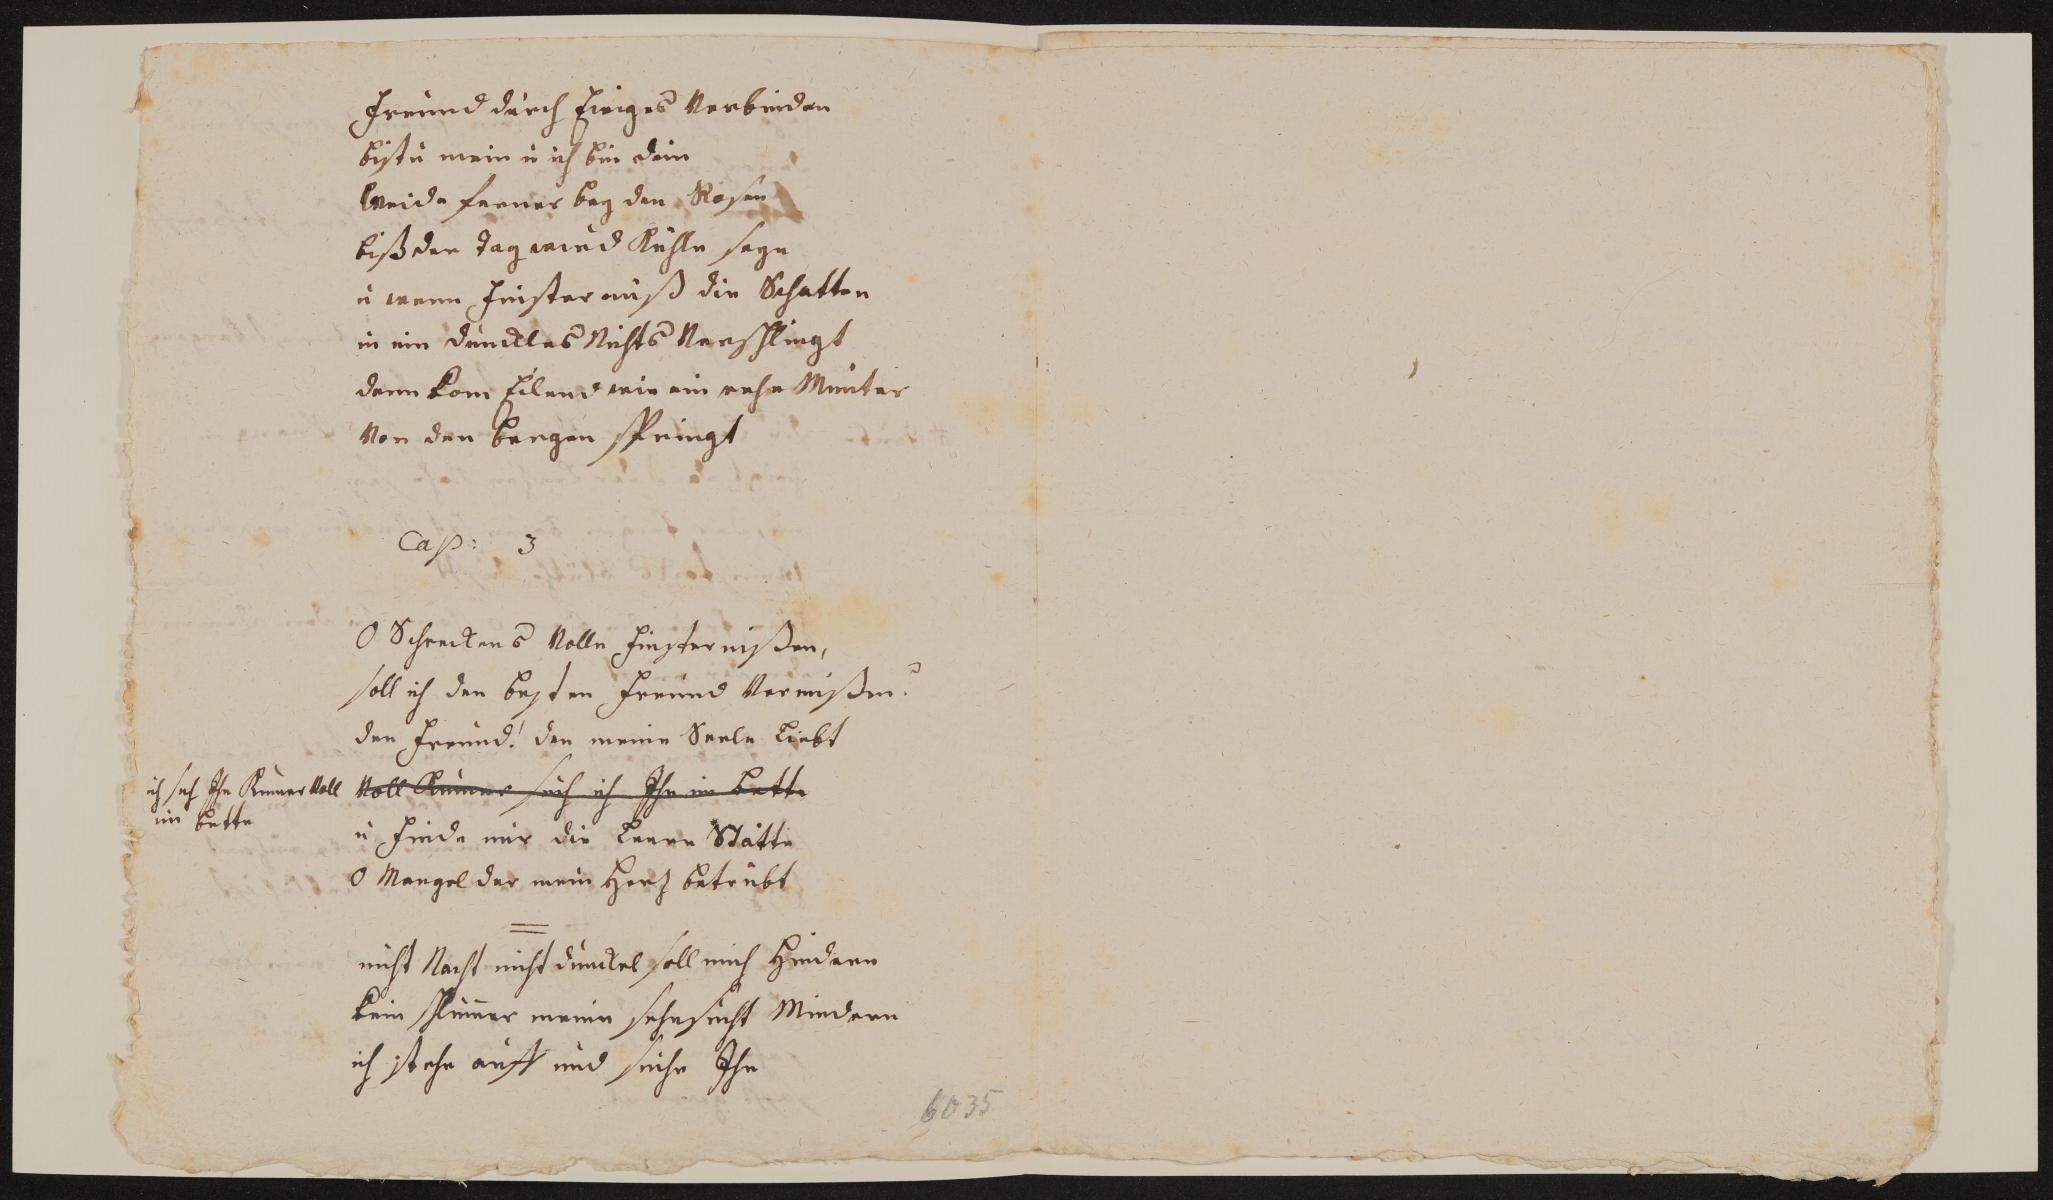 Freund durch Ewiges Verbinden
bistu mein u ich bin dein
Weide ferner bey den Rosen
biß der Tag wird Kühle seyn
u wenn Finsternuß die Schatten
in ein dunckles Nichts Verschlingt
denn kom Eilend wie ein rehe Munter
Von den bergen springt
Cap: 3
O Schreckens Volle Finsternißen,
soll ich den besten Freund Vermißen?
den Freund! den meine Seele Liebt
Voll Kumer such ich Ihn im bette
ich such Ihn Kumer Voll
im bette
u Finde nur die Leere Stätte
O Mangel der mein Hertz betrübt
nicht Nacht nicht dunckel soll mich Hindern
kein schlumer meine sehnsucht Mindern
ich stehe auff und suche Ihn
6035